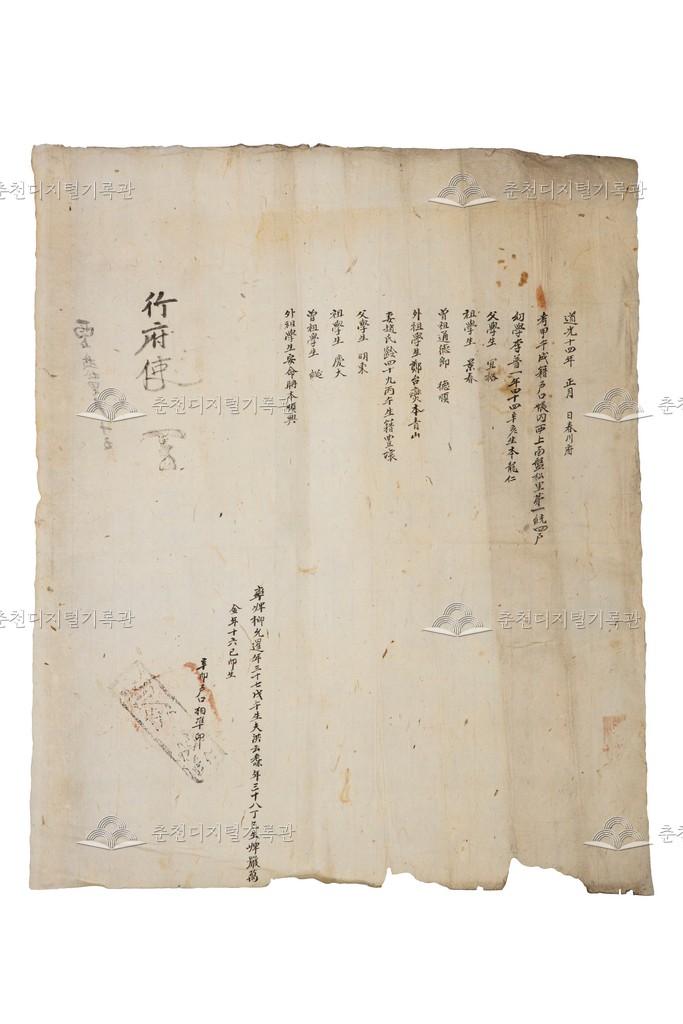 道光十四年 正月 日春川府
考甲午成籍戶口帳內西上面盤松里第一統四戶
幼學李普一年四十四辛亥生本龍仁
父學生 宜裕
祖學生 景春
曾祖通德郎 德順
外祖學生鄭台 本青山
妻趙氏齡四十九丙午生籍豊壤
父學生 明東
祖學生 慶大
曾祖學生
外祖學生安命 本順興
率婢 年三十七戊午生夫洪 年三十八丁巳生婢
年十六己卯生
辛卯戶口相準印
行府使
춘천디지털기록관
춘천디지털기록관
춘천디지털기록관
춘천디지털기록관
춘천디지털기록관
춘천디지털기록관